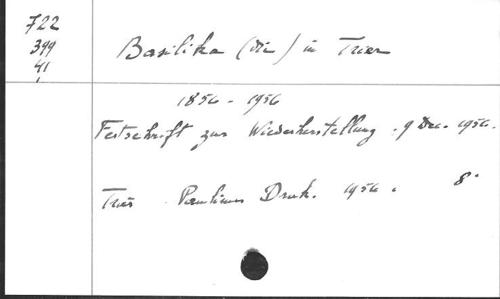 722
399
41
Basilika (die) in Trier
1856 - 1956
Festschrift zur Wiederherstellung. 9 Dec. 1956.
Trier Paulinus Druck. 1956. 8°